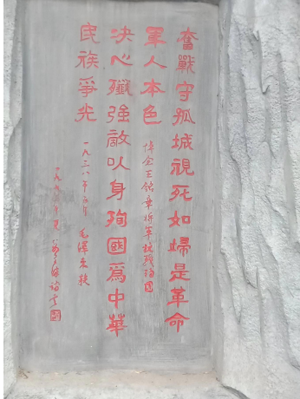 奮戰守孤城視死如歸是革命
軍人本色
悼念王銘章將軍
决心殲強敵以身殉國爲中華
民族爭光
一九三八年 毛澤東
一九九